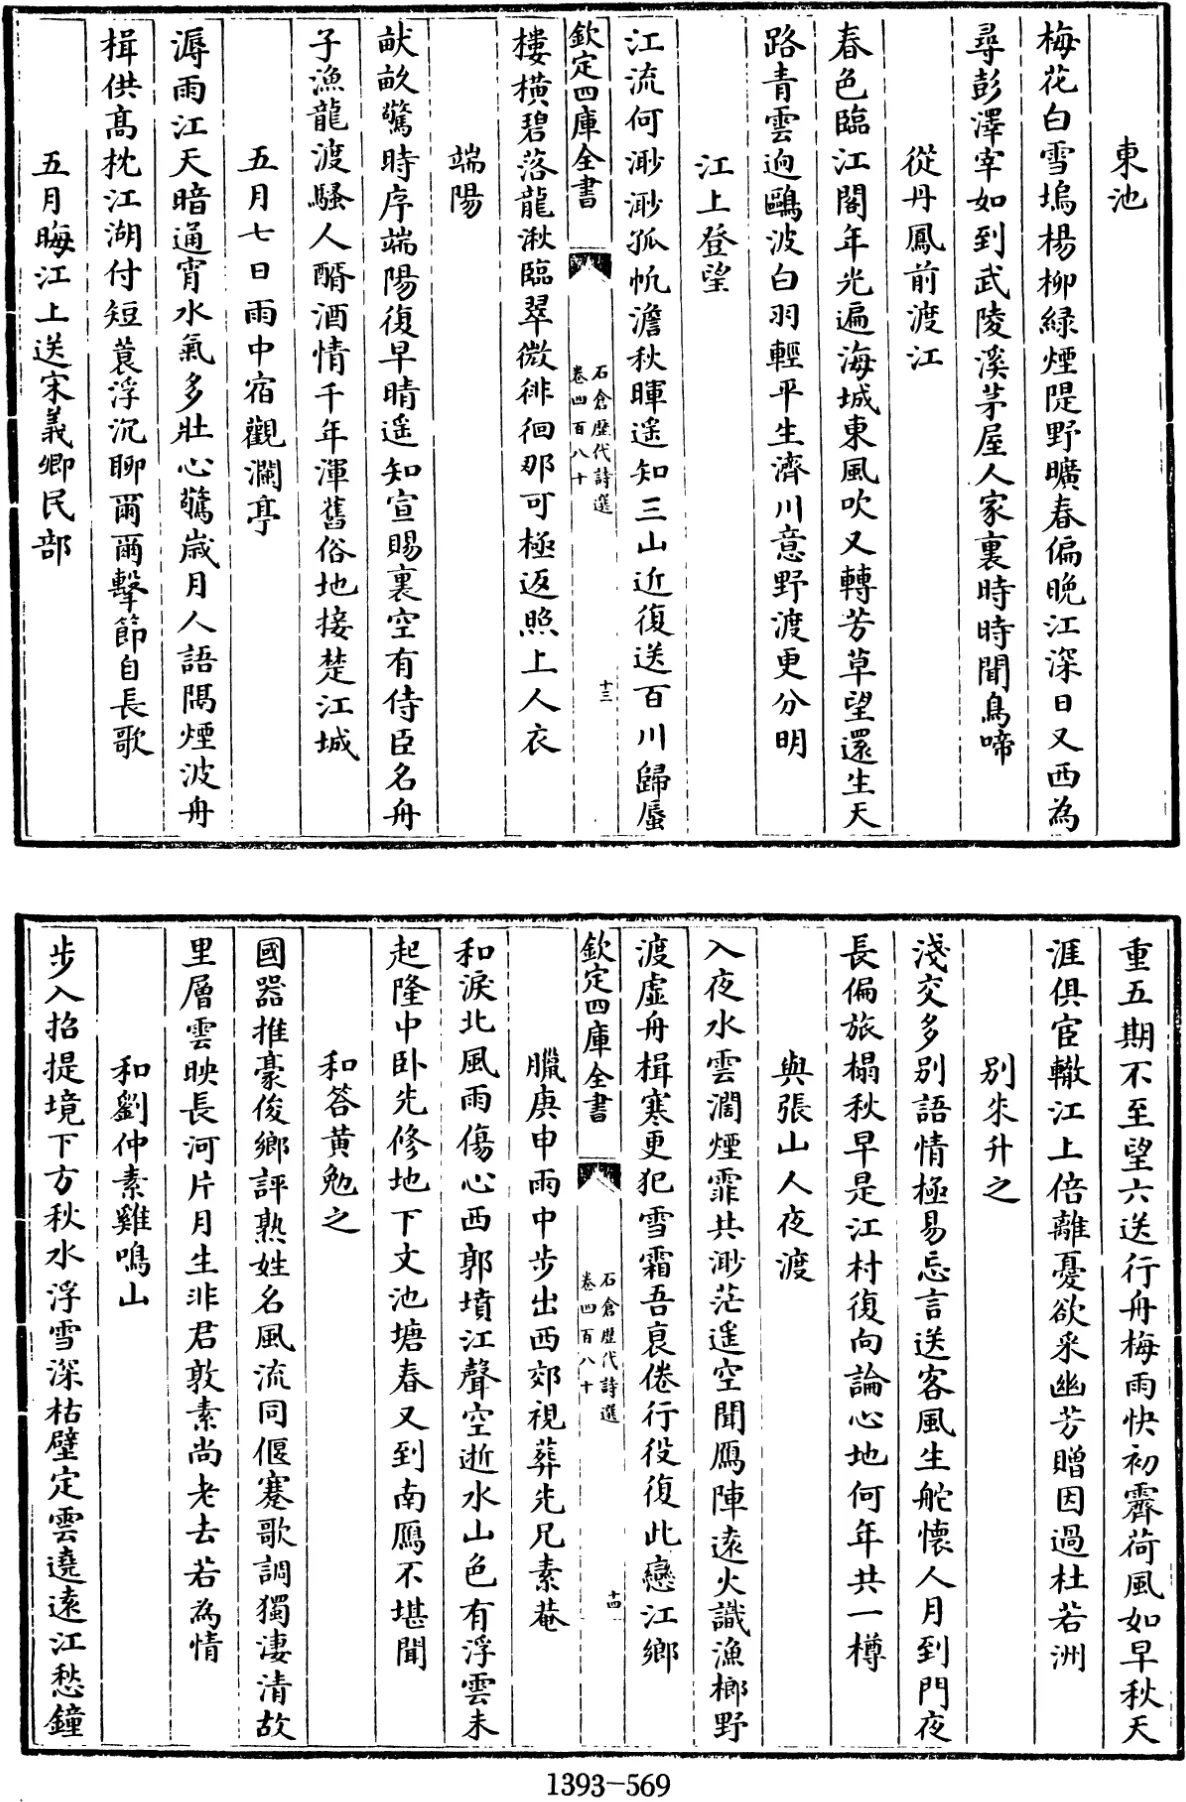 東池
梅花白雪塢楊柳緑煙隄野曠春偏晚江深日又西為
尋彭澤宰如到武陵溪茅屋人家裏時時聞鳥啼
從丹鳳前渡江
春色臨江閣年光遍海城東風吹又轉芳草望還生天
路青雲逈鷗波白羽輕平生濟川意野渡更分明
江上登望
江流何渺渺孤帆澹秋暉遥知三山近復送百川歸蜃
欽定四庫全書
石倉歷代詩選
卷四百八十
十三
樓横碧落龍湫臨翠微徘徊那可極返照上人衣
端陽
畎畝驚時序端陽復早晴遥知宣賜裏空有侍臣名舟
子漁龍渡騷人酹酒情千年渾舊俗地接楚江城
五月七日雨中宿觀瀾亭
溽雨江天暗通宵水氣多壯心驚嵗月人語隔煙波舟
楫供髙枕江湖付短蓑浮沉聊爾爾擊節自長歌
五月晦江上送宋義卿民部
重五期不至望六送行舟梅雨快初霽荷風如早秋天
涯俱宦轍江上倍離憂欲采幽芳贈因過杜若洲
别朱升之
淺交多别語情極易忘言送客風生舵懷人月到門夜
長偏旅榻秋早是江村復向論心地何年共一樽
與張山人夜渡
入夜水雲濶煙霏共渺茫遥空聞鴈陣遠火識漁榔野
渡虚舟楫寒更犯雪霜吾哀倦行役復此戀江鄉
欽定四庫全書
石倉歷代詩選
卷四百八十
十四
臘庚申雨中步出西郊視葬先兄素菴
和淚北風雨傷心西郭墳江聲空逝水山色有浮雲未
起隆中卧先修地下文池塘春又到南鴈不堪聞
和答黄勉之
國器推豪俊鄉評熟姓名風流同偃蹇歌調獨淒清故
里層雲映長河片月生非君敦素尚老去若為情
和劉仲素雞鳴山
步入招提境下方秋水浮雪深枯壁定雲遶遠江愁鐘
1393-569